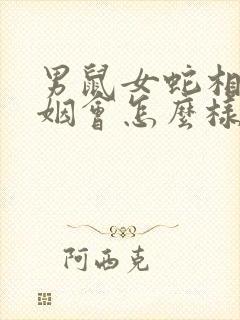 男鼠女蛇相
姻會怎麼樣
阿西克